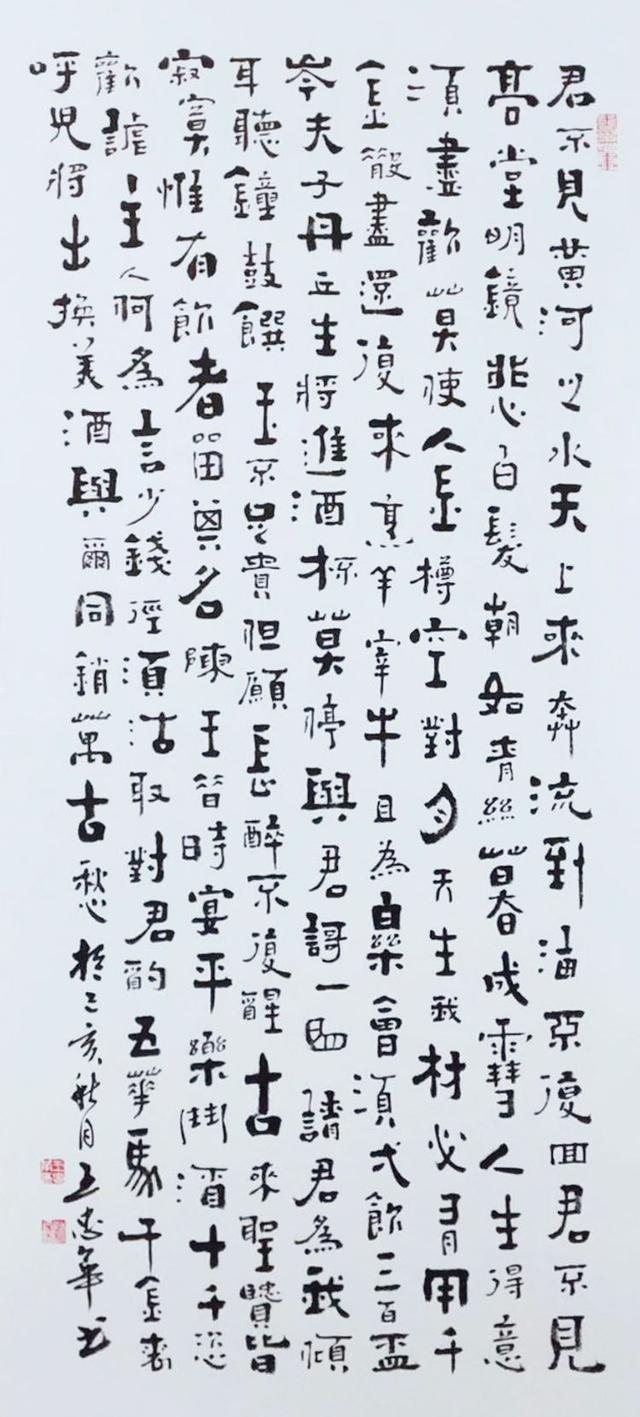 君不見黄河之水天上來奔流到海不復回君不見
高堂明鏡悲白髮朝如青絲暮成雪人生得意
須盡歡莫使人金樽空對月天生我材必有用千
金散盡還復來烹羊宰牛且為樂會須弌飲三百盃
岑夫子丹丘生將進酒杯莫停與君謌一曲請君為我傾
耳聽鐘鼓饌玉不足貴但願長醉不復醒古來聖賢皆
寂寞惟有飲者留其名陳王昔時宴平樂鬥酒十千恣
歡謔主人何為言少錢徑須沽取對君酌五華馬千金裘
呼児將出換美酒與爾同銷萬古愁於己亥秋月王忠華书